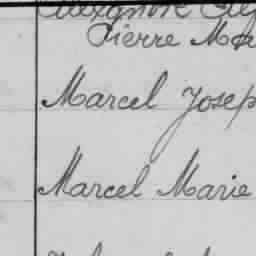 Pierre Ma
Marcel Josep
Marcel Marie